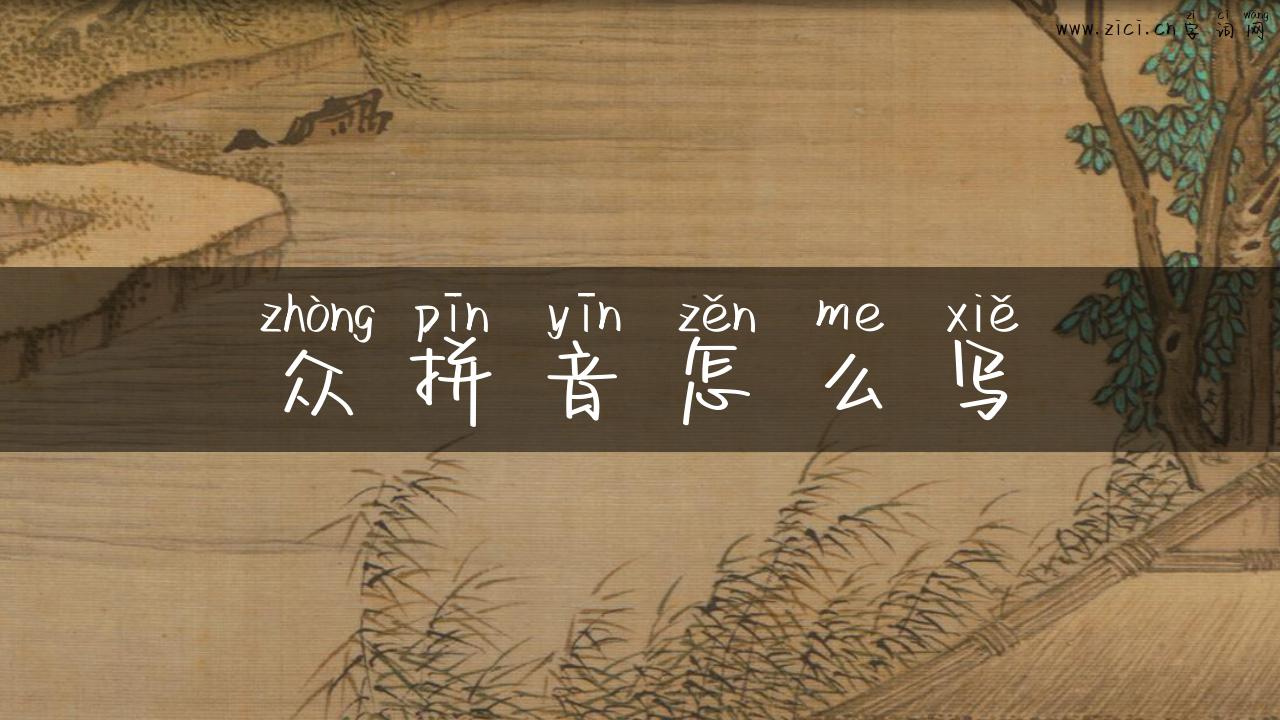 zì cí wǎng
www.zici.cn字词网
zhòng pīn yīn zěn me xiě
众拼音怎么写